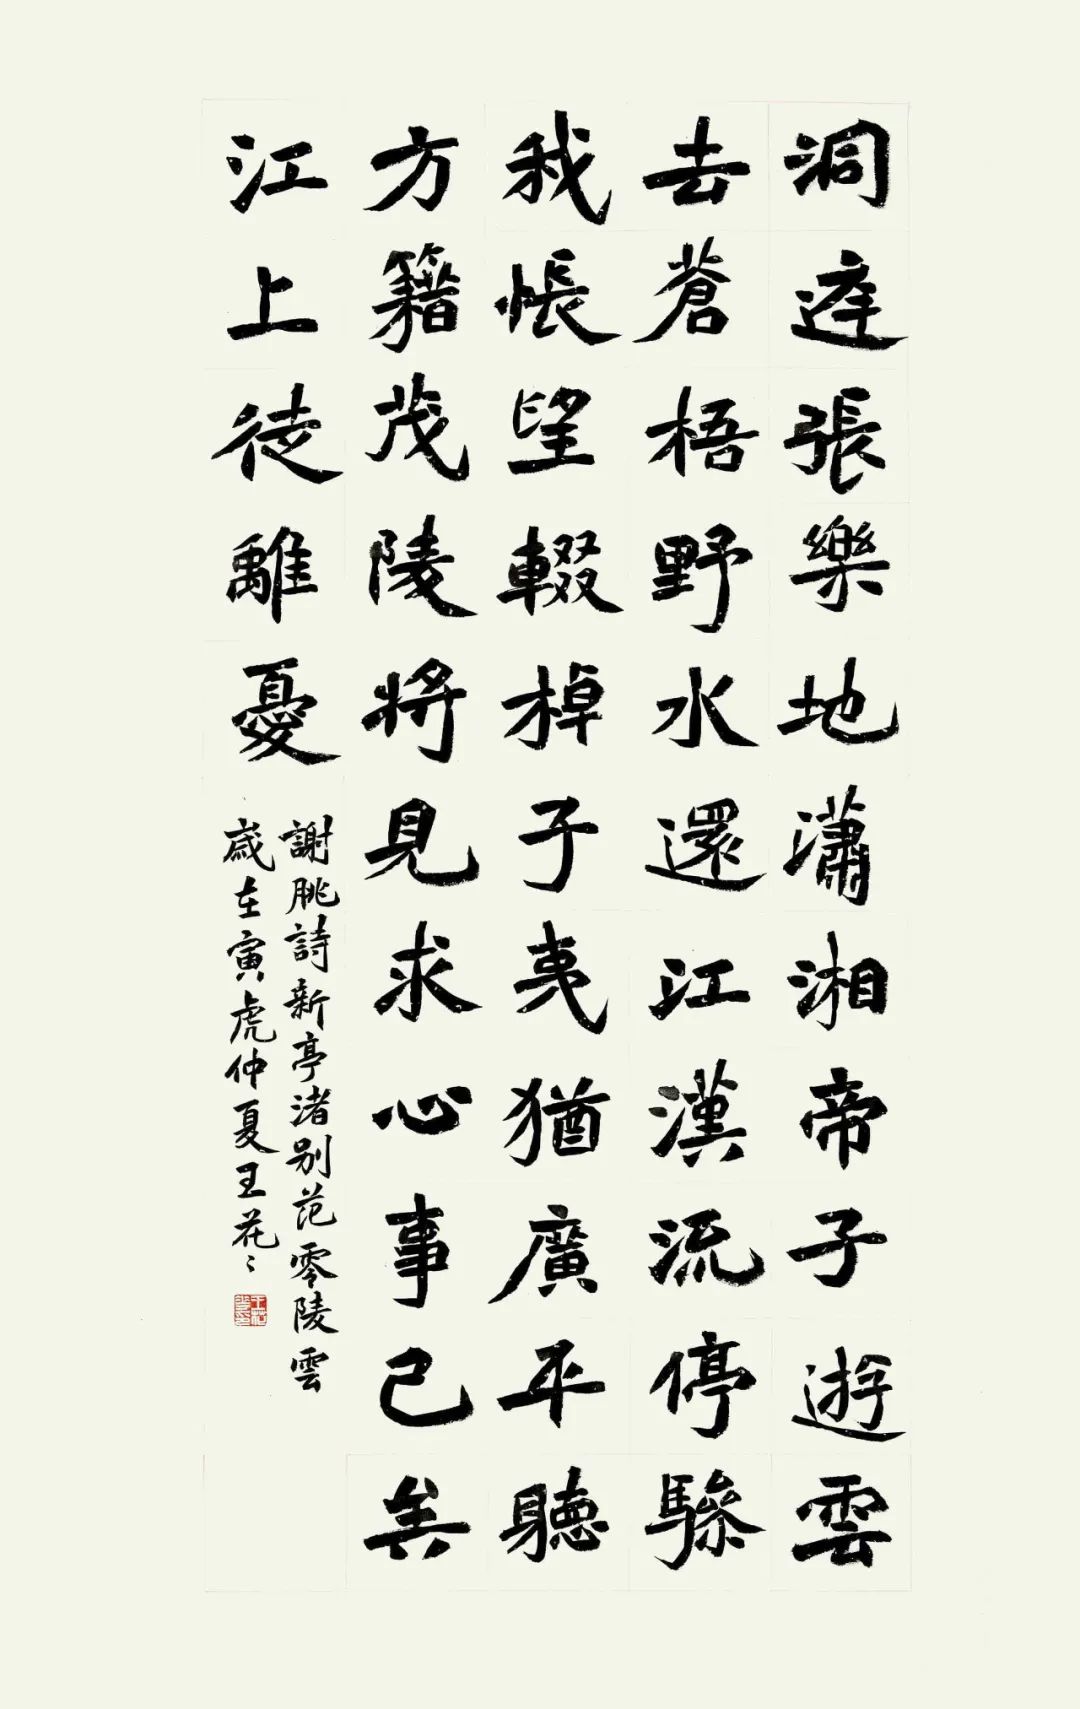 洞庭張樂地瀟湘帝子遊雲
去蒼梧野水還江漢流停驂
我悵望輟棹子夷猶廣平聽
方籍茂陵將見求心事已矣
江上徒離憂
謝朓詩新亭渚別范零陵雲
歲在寅虎仲夏王花〻